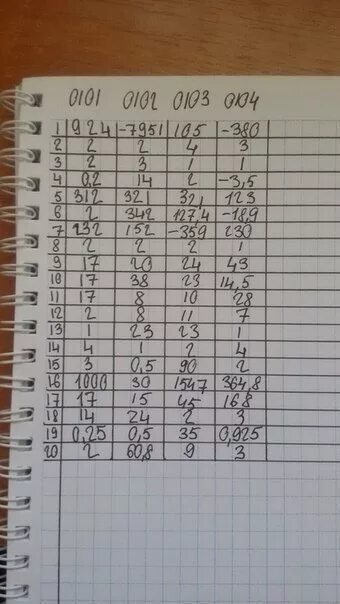 0101 0102 0103 0104
1 924 -7951 105 -380
2 2 2 4 3
3 2 3 1 1
4 0,2 14 2 -3,5
5 312 321 321 123
6 2 342 127,4 -18,9
7 232 152 -359 230
8 2 2 2 1
9 17 20 24 43
10 17 38 23 14,5
11 17 8 10 28
12 2 8 11 7
13 1 23 23 1
14 4 1 2 4
15 3 0,5 90 2
16 1000 30 1547 364,8
17 17 15 45 168
18 14 24 2 3
19 0,25 0,5 35 0,925
20 2 60,8 9 3